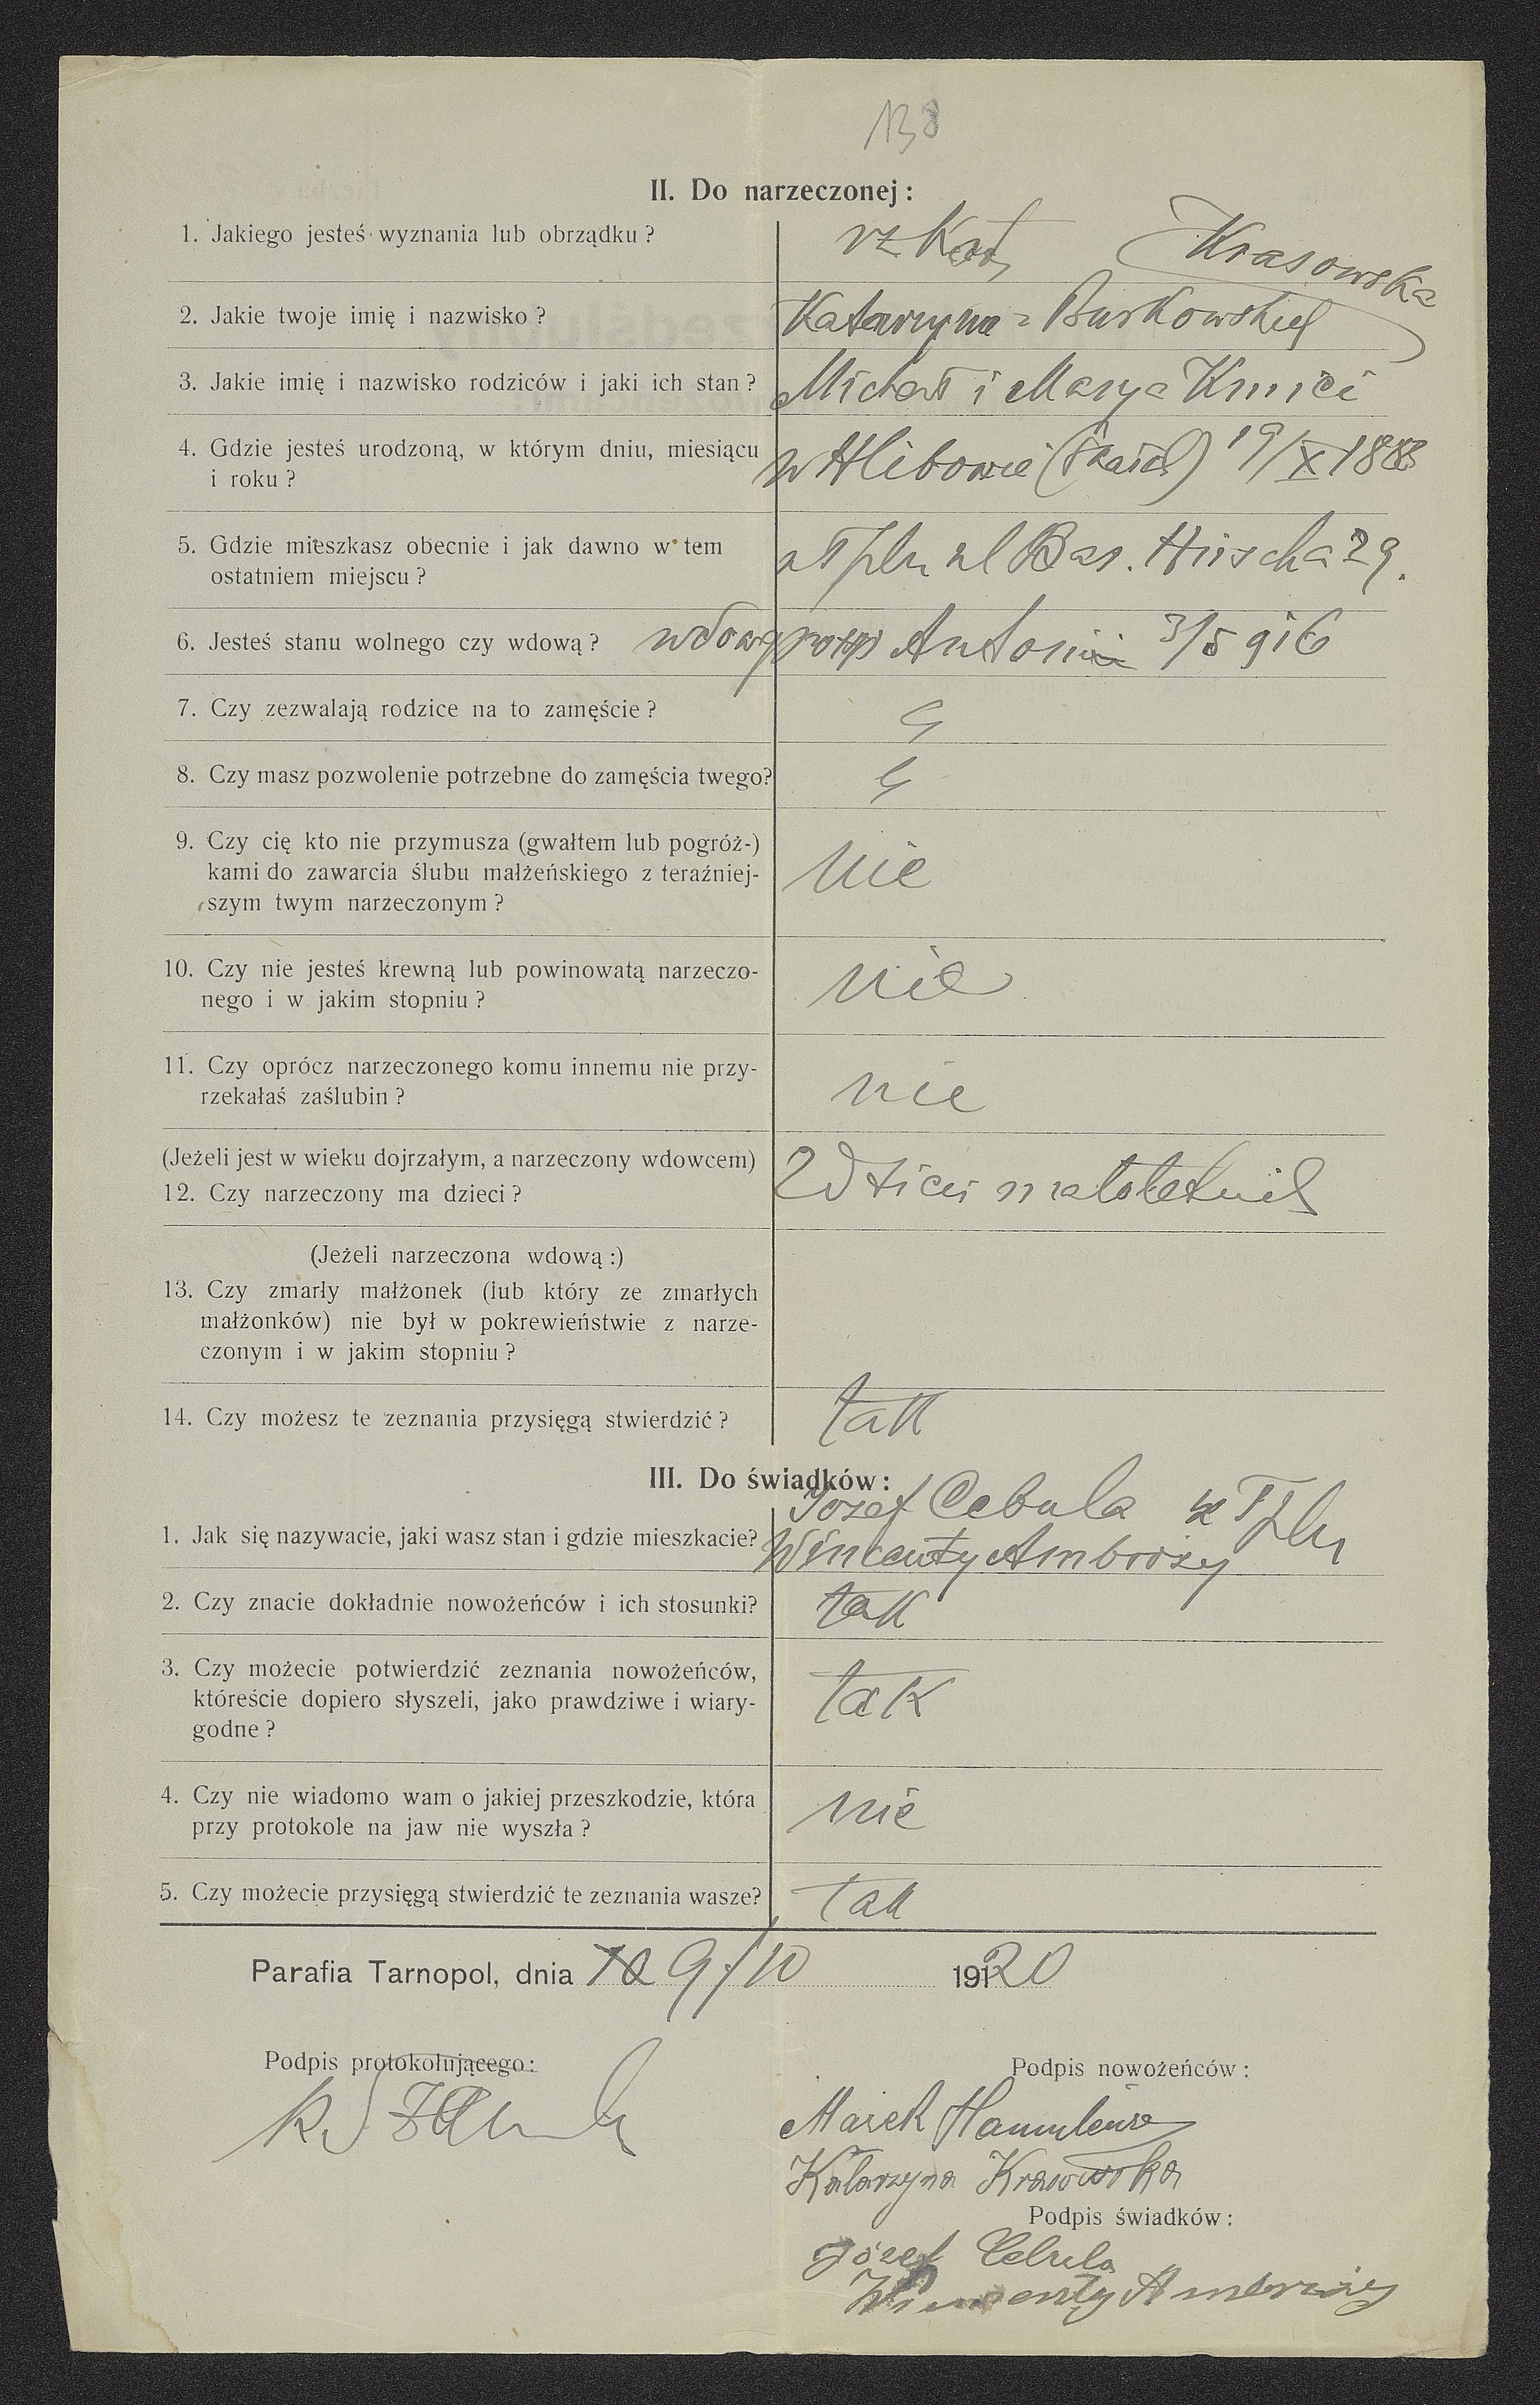 138
II. Do narzeczonej:
1. Jakiego jesteś wyznania lub obrządku?
rz kat
Krasowska
2. Jakie twoje imię i nazwisko?
Katarzyna
3. Jakie imię i nazwisko rodziców i jaki ich stan?
Michał i Marya Kmici
4. Gdzie jesteś urodzoną, w którym dniu, miesiącu
i roku?
w Hlibowie 19/X 1883
5. Gdzie mieszkasz obecnie i jak dawno w tem
ostatniem miejscu?
w Tplu ul Bar. Hirscha 29.
6. Jesteś stanu wolnego czy wdową?
wdową Antoni 3/5 916
7. Czy zezwalają rodzice na to zamęście?
8. Czy masz pozwolenie potrzebne do zamęścia twego?
9. Czy cię kto nie przymusza (gwałtem lub pogróż-)
kami do zawarcia ślubu małżeńskiego z teraźniej-
szym twym narzeczonym?
nie
10. Czy nie jesteś krewną lub powinowatą narzeczo-
nego i w jakim stopniu?
nie
11. Czy oprócz narzeczonego komu innemu nie przy-
rzekałaś zaślubin?
nie
(Jeżeli jest w wieku dojrzałym, a narzeczony wdowcem)
12. Czy narzeczony ma dzieci?
2 dzieci małoletnich
(Jeżeli narzeczona wdową:)
13. Czy zmarły małżonek (lub który ze zmarłych
małżonków) nie był w pokrewieństwie z narze-
czonym i w jakim stopniu?
14. Czy możesz te zeznania przysięgą stwierdzić?
tak
III. Do świadków:
Józef Cebula z Tplu
1. Jak się nazywacie, jaki wasz stan i gdzie mieszkacie?
Wincenty Ambroży
2. Czy znacie dokładnie nowożeńców i ich stosunki?
tak
3. Czy możecie potwierdzić zeznania nowożeńców,
któreście dopiero słyszeli, jako prawdziwe i wiary-
godne?
tak
4. Czy nie wiadomo wam o jakiej przeszkodzie, która
przy protokole na jaw nie wyszła?
nie
5. Czy możecie przysięgą stwierdzić te zeznania wasze?
tak
Parafia Tarnopol, dnia 9/10 1920
Podpis protokołującego:
Podpis nowożeńców:
Marek
Katarzyna Krasowska
Podpis świadków:
Józef Cebula
Wincenty Ambroży